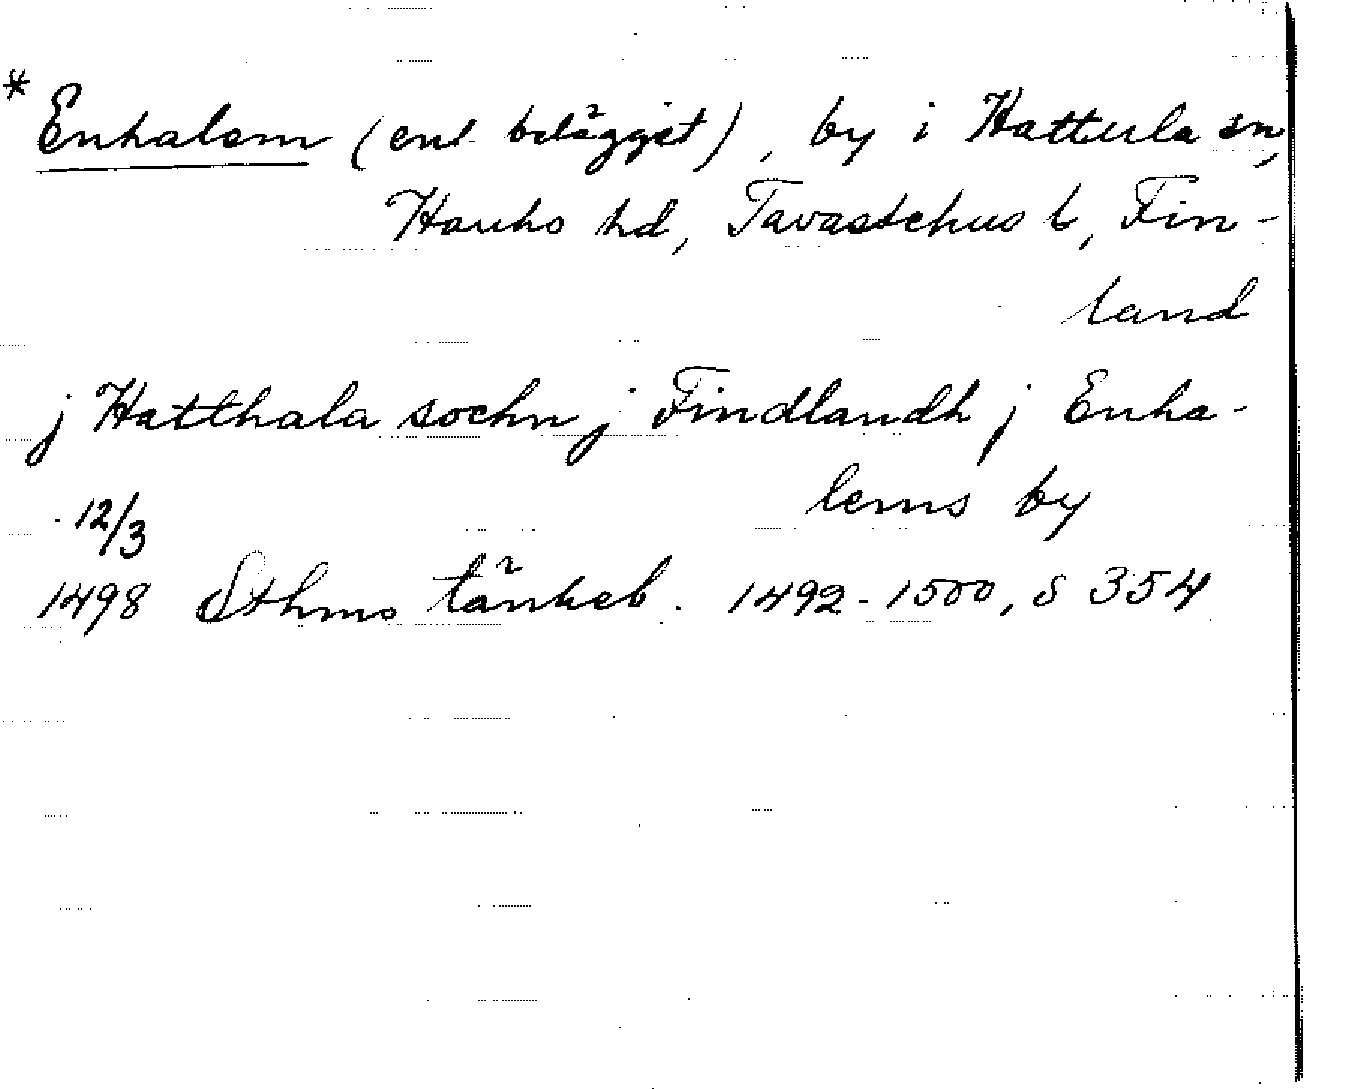 * Enhalem (enl belägget), by i Hattula sn,
Hauho hd, Tavastehus l, Fin-
land
j Hatthala sochn j Findlandh j Enha-
lems by
12/3
1498 Sthms tänkeb. 1492-1500, s 354